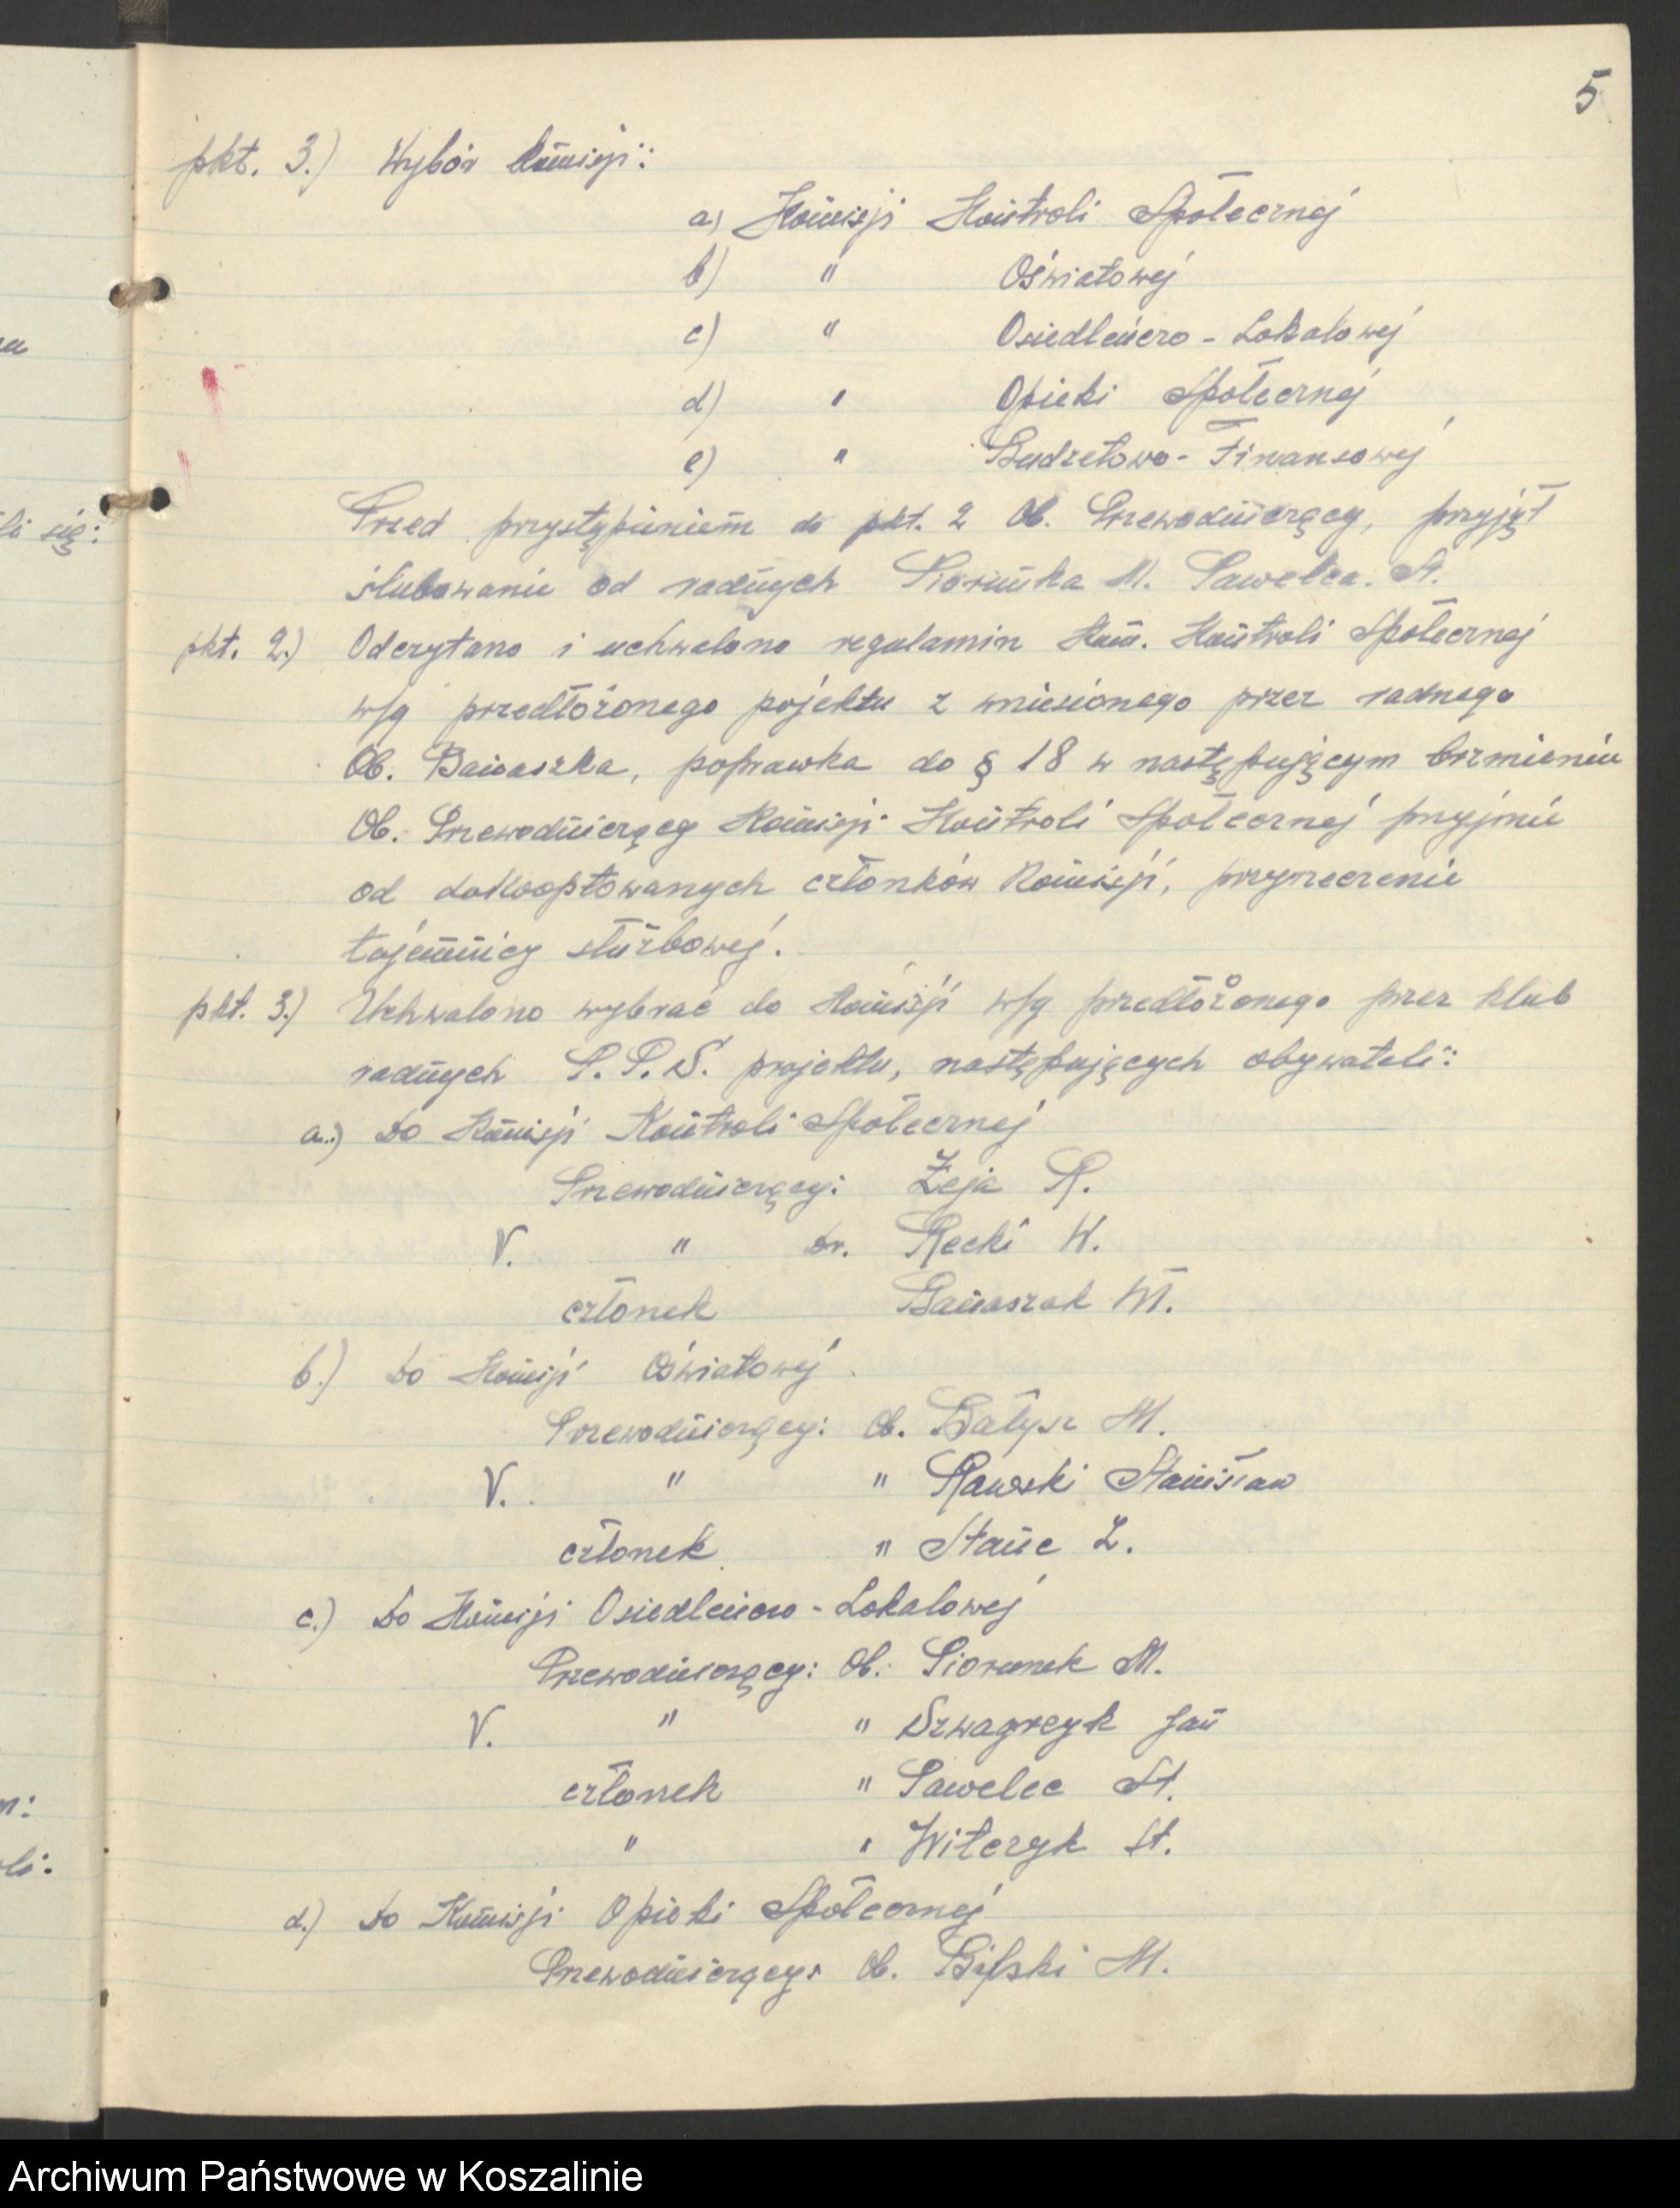 5
pkt. 3.) Wybór komisji:
a) Komisji Kontroli Społecznej
b) " Oświatowej
c) " Osiedleńczo - Lokalowej
d) " Opieki Społecznej
e) " Budżetowo - Finansowej
Przed przystąpieniem do pkt. 2 Ob. Przewodniczący, przyjął
ślubowanie od radnych Piorunka M. Pawelca. St.
pkt. 2.) Odczytano i uchwalono regulamin Kom. Kontroli Społecznej
w/g przedłożonego pojektu z wniesionego przez radnego
Ob. Banaszka, poprawka do § 18 w następującym brzmieniu
Ob. Przewodniczący Komisji Kontroli Społecznej przyjmie
od dokooptowanych członków Komisji, przyrzeczenie
tajemnicy służbowej.
pkt. 3.) Uchwalono wybrać do Komisji w/g przedłożonego przez klub
radnych P.P.S. projektu, następujących obywateli:
a.) Do Komisji Kontroli Społecznej
Przewodniczący: Żeja R.
V. " Dr. Recki W.
członek Banaszak M.
b.) Do Komisji Oświatowej
Przewodniczący: Ob. Bałysz M.
V. " " Rawski Stanisław
członek " Stanc Z.
c.) Do Komisji Osiedleńczo - Lokalowej
Przewodniczący: Ob. Piorunek M.
V. " " Szwagrzyk Jan
członek " Pawelec St.
" " Witczyk St.
d.) Do Komisji Opieki Społecznej
Przewodniczący: Ob. Bilski M.
li się:
Archiwum Państwowe w Koszalinie